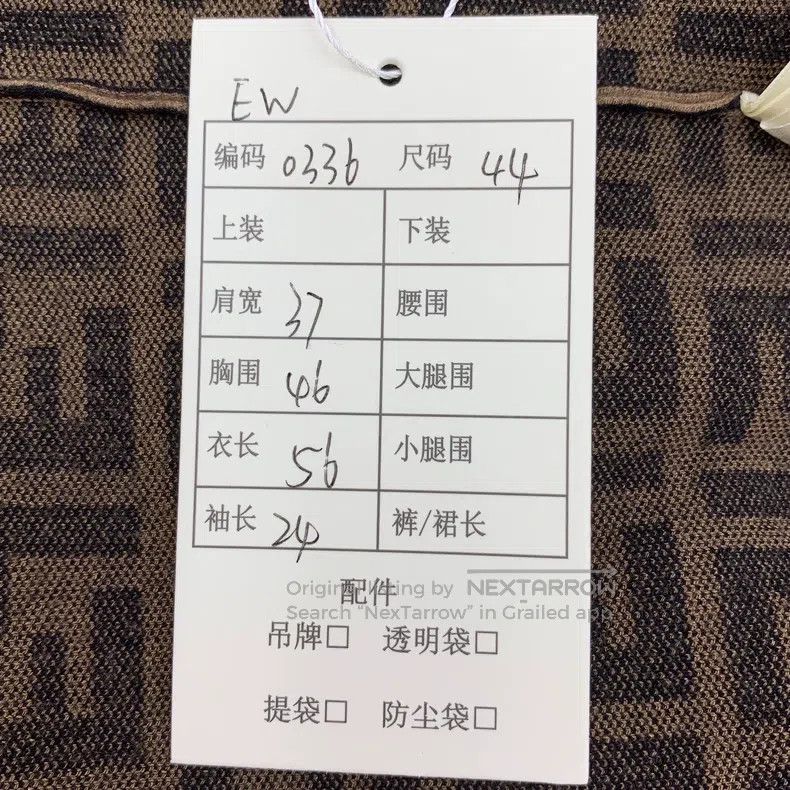 EW
编码 0336 尺码 44
上装 下装
肩宽 37 腰围
胸围 46 大腿围
衣长 56 小腿围
袖长 24 裤/裙长
配件
Original listing by NEXTARROW
Search "NexTarrow" in Grailed app
吊牌□ 透明袋□
提袋□ 防尘袋□